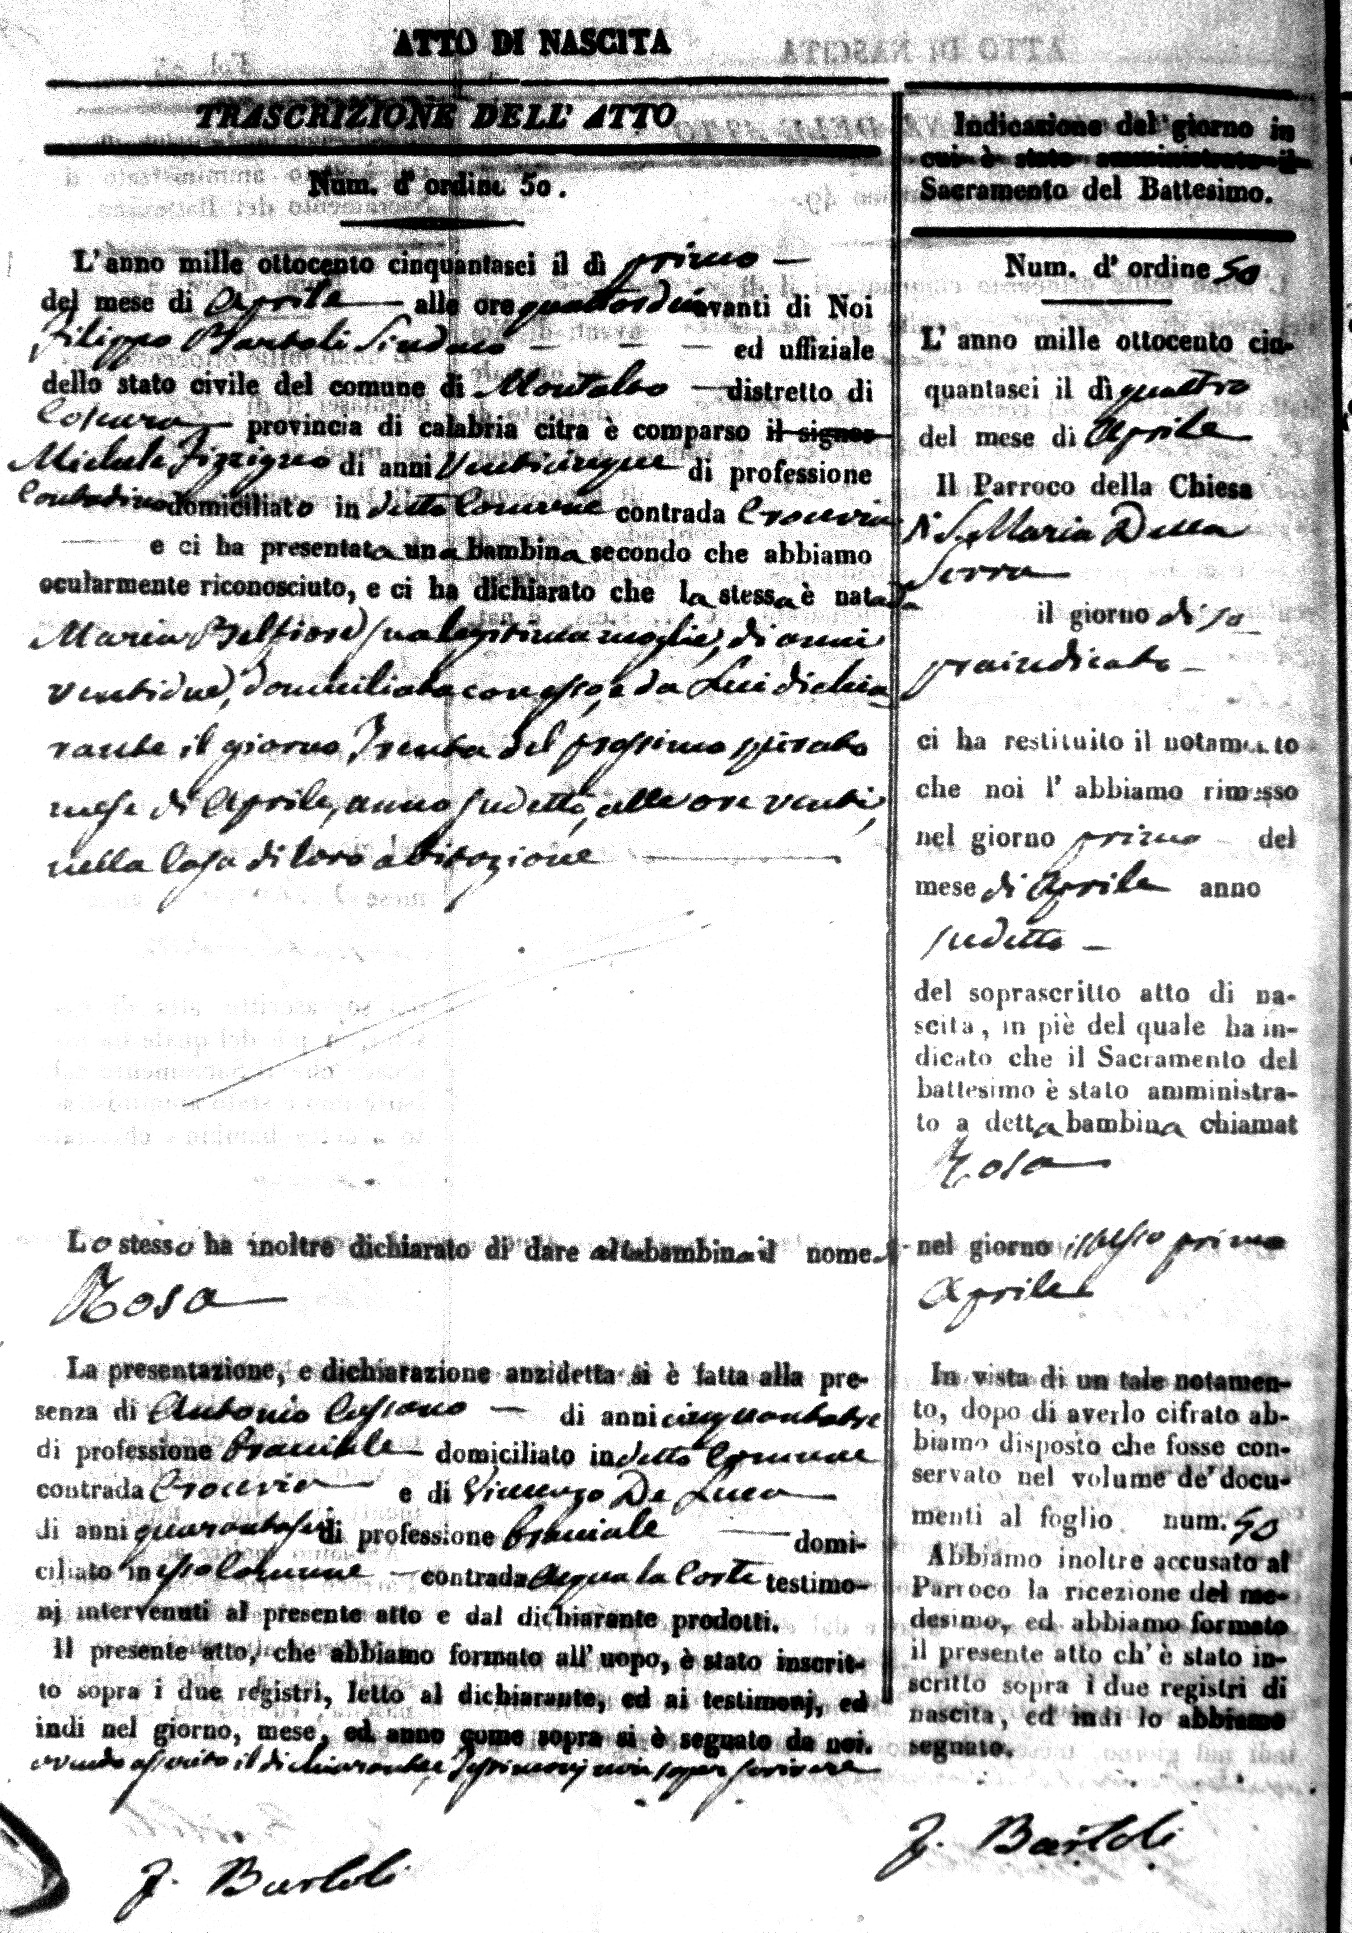 ATTO DI NASCITA
TRASCRIZIONE DELL' ATTO
Num. d' ordine 50.
L'anno mille ottocento cinquantasei il dì primo
del mese di Aprile alle ore quattordici avanti di Noi
Filippo Bartoli Sindaco ed uffiziale
dello stato civile del comune di Montalto distretto di
Cosenza provincia di calabria citra è comparso il signor
Michele di anni Venticinque di professione
Contadino domiciliato in detto Comune contrada Crocevia
e ci ha presentata una bambina secondo che abbiamo
ocularmente riconosciuto, e ci ha dichiarato che la stessa è nata da
Maria Belfiore sua legittima moglie, di anni
ventidue, domiciliata con esso, e da Lui dichia
rante il giorno Trenta del prossimo spirato
mese di Aprile, anno sudetto, alle ore venti,
nella Casa di loro abitazione
Lo stesso ha inoltre dichiarato di dare alla bambina il nome di
Rosa
La presentazione, e dichiarazione anzidetta si è fatta alla pre-
senza di Antonio Cassano di anni cinquantatre
di professione Bracciale domiciliato in detto Comune
contrada Crocevia e di Vincenzo De Luca
di anni quarantasei di professione Bracciale domi-
ciliato in esso Comune contrada Acqua la Corte testimo-
nj intervenuti al presente atto e dal dichiarante prodotti.
Il presente atto, che abbiamo formato all' uopo, è stato inscrit-
to sopra i due registri, letto al dichiarante, ed ai testimonj, ed
indi nel giorno, mese, ed anno come sopra si è segnato da noi.
avendo asserito il dichiarante e Testimonj non saper scrivere
F. Bartoli
Indicazione del giorno in
cui è stato amministrato il
Sacramento del Battesimo.
Num. d' ordine 50
L' anno mille ottocento cin-
quantasei il dì quattro
del mese di Aprile
Il Parroco della Chiesa
S. Maria Della
Serra
il giorno di so
praindicato
ci ha restituito il notamento
che noi l' abbiamo rimesso
nel giorno primo del
mese di Aprile anno
sudetto
del soprascritto atto di na-
scita, in piè del quale ha in-
dicato che il Sacramento del
battesimo è stato amministra-
to a detta bambina chiamat
Rosa
nel giorno istesso primo
Aprile
In vista di un tale notamen-
to, dopo di averlo cifrato ab-
biamo disposto che fosse con-
servato nel volume de' docu-
menti al foglio num. 50
Abbiamo inoltre accusato al
Parroco la ricezione del me-
desimo, ed abbiamo formato
il presente atto ch' è stato in-
scritto sopra i due registri di
nascita, ed indi lo abbiamo
segnato.
F. Bartoli